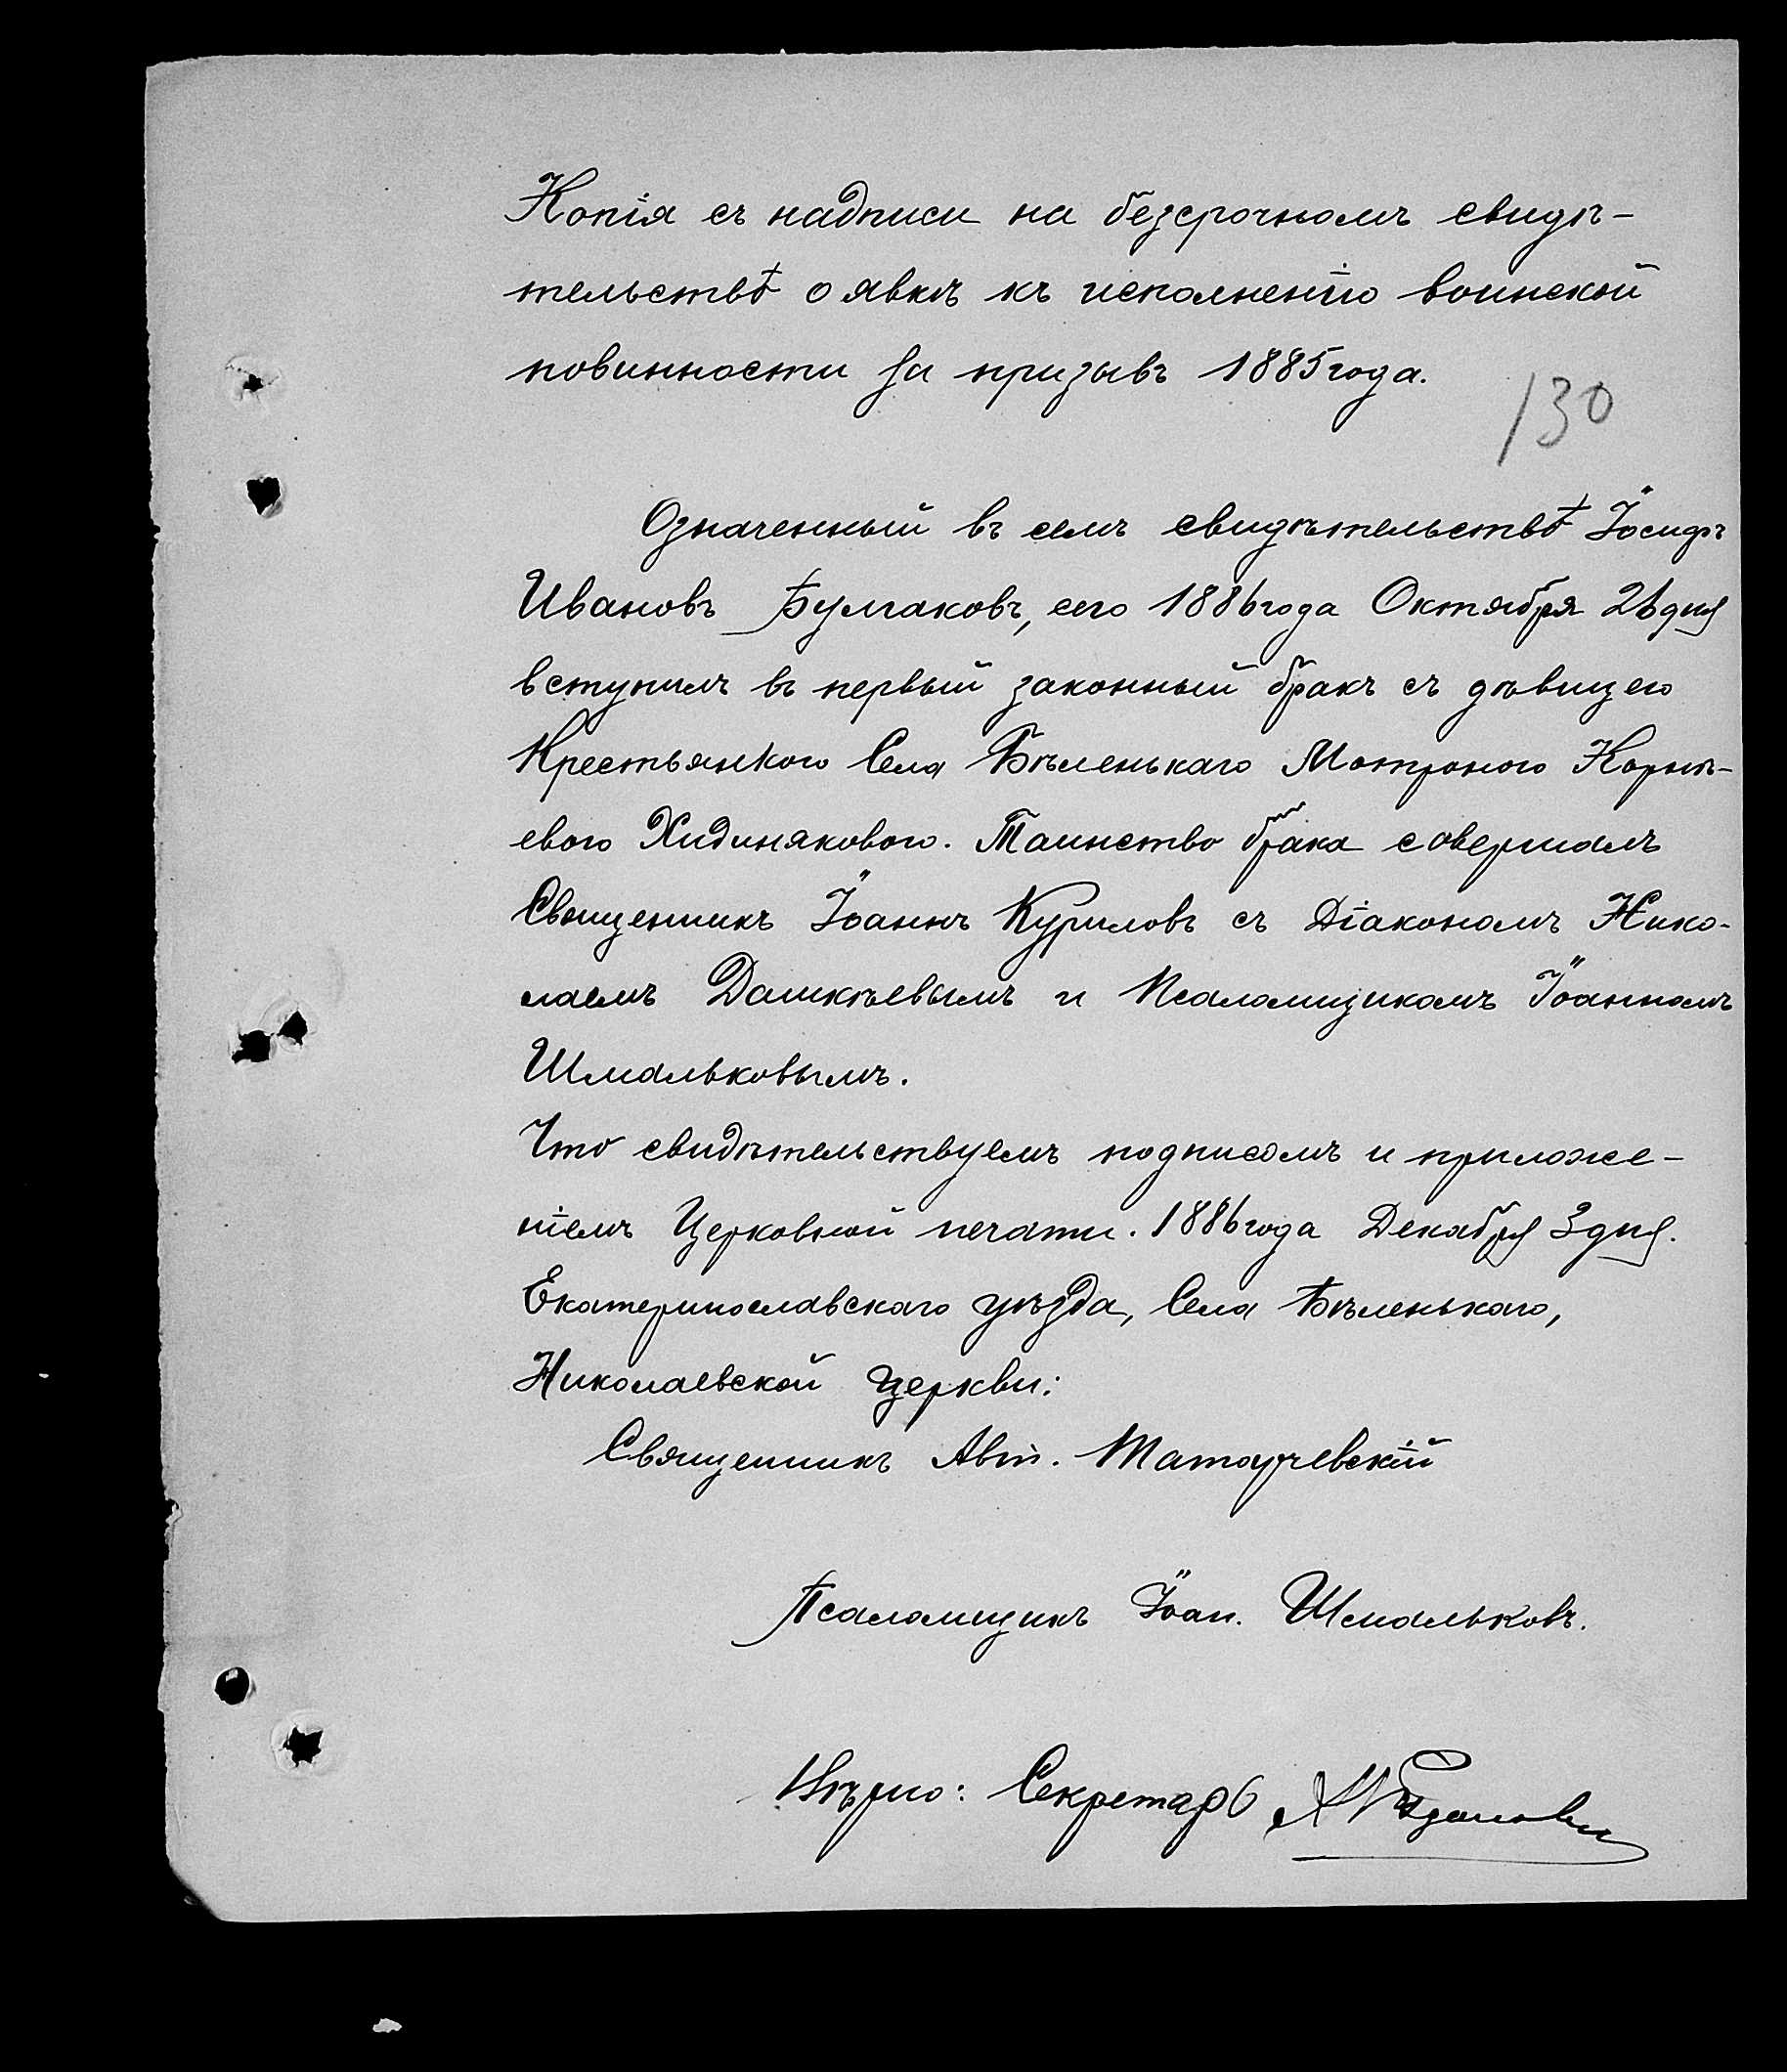 Копія съ надписи на безсрочномъ свидѣ-
тельствѣ о явкѣ къ исполненію воинской
повинности за призывъ 1885 года.
130
Означенный въ семъ свидѣтельствѣ Іосифъ
Ивановъ Булгаковъ, сего 1886 года Октября 26 дня
вступилъ въ первый законный бракъ съ дѣвицею
Крестьянкою Села Бѣленькаго Матроною Корнѣ-
евою Хидиняковою. Таинство брака совершалъ
Священникъ Іоаннъ Куриловъ съ Діакономъ Нико-
лаемъ Дашкѣевымъ и Псаломщикомъ Іоанномъ
Шмальковымъ.
Что свидѣтельствуемъ подписомъ и приложе-
ніемъ Церковной печати. 1886 года Декабря 3 дня.
Екатеринославскаго уѣзда, Села Бѣленькаго,
Николаевской церкви:
Священникъ Авт.
Псаломщикъ Іоан. Шмальковъ.
Вѣрно: Секретарь